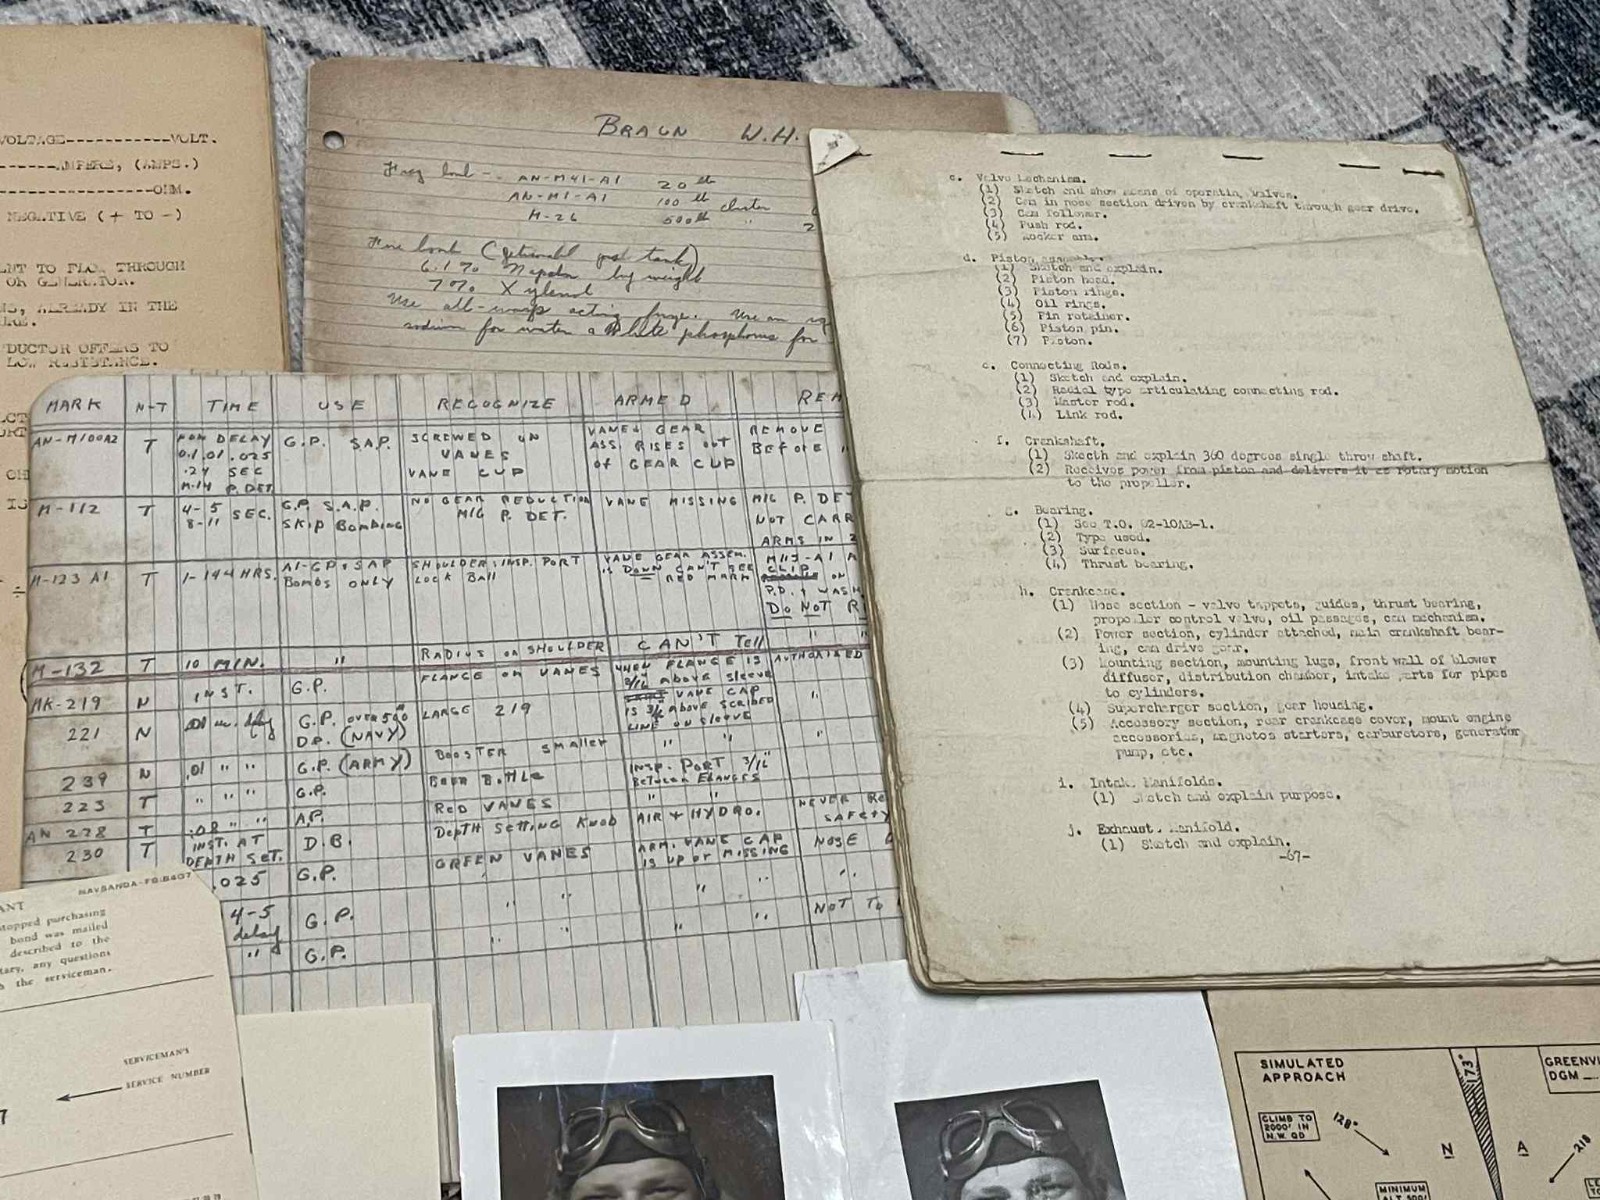 VOLTAGE-----------VOLT.
------AMPERE, (AMPS.)
----------------OHM.
NEGATIVE (+ TO -)
TO FLOW THROUGH
OR GENERATOR.
ALREADY IN THE
OFFERS TO
LOW RESISTANCE.
BRAUN W.H.
Frag bomb - AN-M41-A1 20 lb
AN-M1-A1 100 lb cluster
M-26 500 lb "
Fire bomb (
6.1% Napalm by weight
7% Xylenol
Use all-ways acting fuze. Use an
sodium for water & White phosphorus for
MARK N-T TIME USE RECOGNIZE ARMED REM
AN-M100A2 T NON DELAY 0.1 .01 .025 .24 SEC M-14 P. DET. G.P. S.A.P. SCREWED ON VANES VANE CUP VANE & GEAR ASS. RISES OUT OF GEAR CUP REMOVE BEFORE
M-112 T 4-5 8-11 SEC. G.P. S.A.P. SKIP BOMBING NO GEAR REDUCTION M16 P. DET. VANE MISSING M16 P. DET NOT CARR ARMS IN 2
M-123 A1 T 1-144 HRS. A1-GP & SAP BOMBS ONLY SHOULDER & INSP. PORT LOCK BALL VANE GEAR ASSEM. IS DOWN CAN'T SEE RED MARK M113-A1 CLIP ON P.D. & WASH DO NOT R
M-132 T 10 MIN. " RADIUS ON SHOULDER CAN'T TELL " "
MK-219 N INST. G.P. FLANGE ON VANES WHEN FLANGE IS 3/16 ABOVE SLEEVE AUTHORIZED
221 N .01 sec. delay G.P. OVER 500 D.P. (NAVY) LARGE 219 VANE CAP IS 3/16 ABOVE SCRIBED LINE ON SLEEVE "
239 N .01 " " G.P. (ARMY) BOOSTER SMALLER " " "
223 T " " " G.P. BEER BOTTLE INSP. PORT 3/16" BETWEEN FLANGES
AN 228 T .08 " " A.P. RED VANES " "
230 T INST. AT DEPTH SET. D.B. DEPTH SETTING KNOB AIR & HYDRO. NEVER RE SAFETY
.025 G.P. GREEN VANES ARM. VANE CAP IS UP OR MISSING NOSE
4-5 delay G.P. " " " " "
" G.P. " " " " NOT TO
c. Valve Mechanism.
(1) Sketch and show means of operatin valves.
(2) Cam in nose section driven by crankshaft through gear drive.
(3) Cam follower.
(4) Push rod.
(5) Rocker arm.
d. Piston assembly.
(1) Sketch and explain.
(2) Piston head.
(3) Piston rings.
(4) Oil rings.
(5) Pin retainer.
(6) Piston pin.
(7) Piston.
e. Connecting Rods.
(1) Sketch and explain.
(2) Radial type articulating connecting rod.
(3) Master rod.
(4) Link rod.
f. Crankshaft.
(1) Sketch and explain 360 degrees single throw shaft.
(2) Receives power from piston and delivers it as rotary motion
to the propeller.
g. Bearing.
(1) See T.O. 02-10AB-1.
(2) Type used.
(3) Surfaces.
(4) Thrust bearing.
h. Crankcase.
(1) Nose section - valve tappets, guides, thrust bearing,
propeller control valve, oil passages, cam mechanism.
(2) Power section, cylinder attached, main crankshaft bear-
ing, cam drive gear.
(3) Mounting section, mounting lugs, front wall of blower
diffuser, distribution chamber, intake parts for pipes
to cylinders.
(4) Supercharger section, gear housing.
(5) Accessory section, rear crankcase cover, mount engine
accessories, magnetos starters, carburetors, generator
pump, etc.
i. Intake Manifolds.
(1) Sketch and explain purpose.
j. Exhaust Manifold.
(1) Sketch and explain.
-67-
NAVSANDA-FG-B407
stopped purchasing
bond was mailed
described to the
any questions
the serviceman.
SERVICEMAN'S
SERVICE NUMBER
7
SIMULATED
APPROACH
CLIMB TO
2000' IN
N.W. QD
128°
173°
N
A
218
GREENV
DGM
MINIMUM